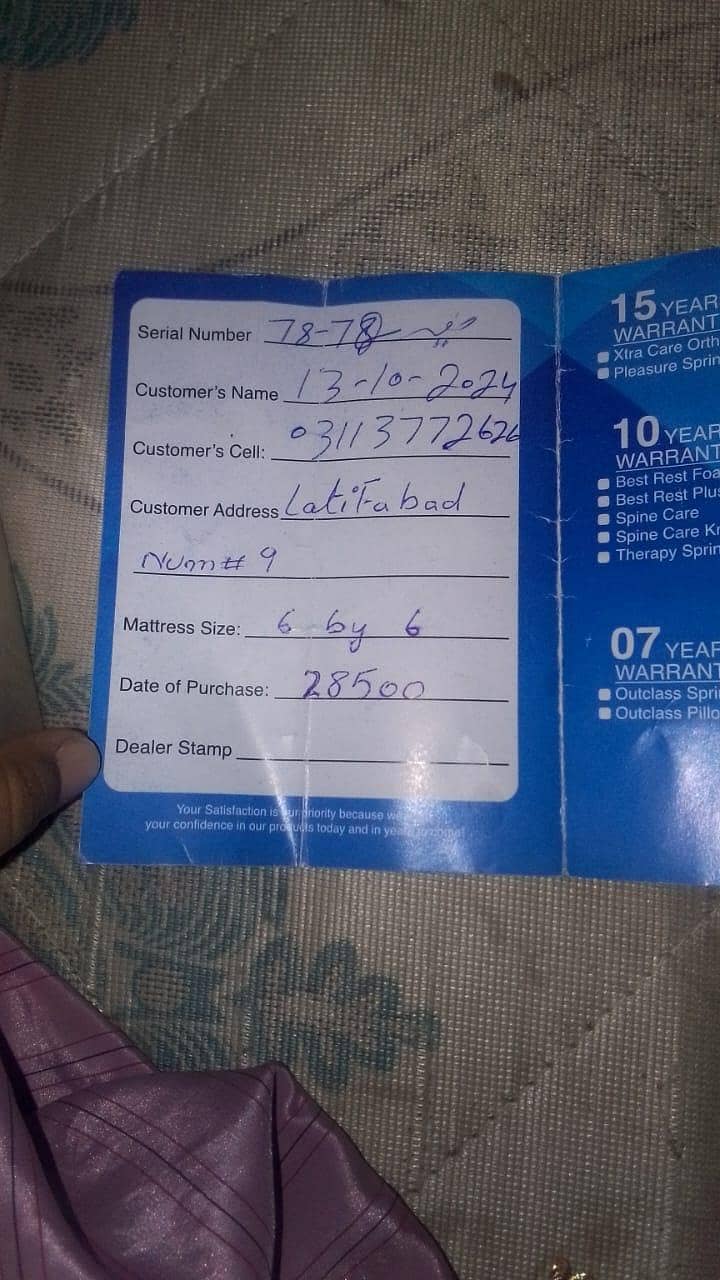 Serial Number 78-78
Customer's Name 13-10-2024
Customer's Cell: 03113772626
Customer Address Latifabad
Num # 9
Mattress Size: 6 by 6
Date of Purchase: 28500
Dealer Stamp
Your Satisfaction is our priority because we
your confidence in our products today and in years to come!
15 YEAR
WARRANT
Xtra Care Orth
Pleasure Sprin
10 YEAR
WARRANT
Best Rest Foa
Best Rest Plus
Spine Care
Spine Care Kr
Therapy Sprin
07 YEAR
WARRANT
Outclass Spri
Outclass Pillo